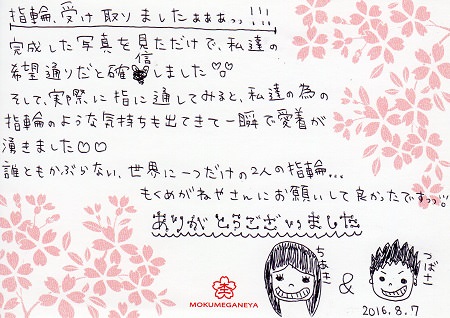 指輪、受け取りましたぁぁぁっっ!!!
完成した写真を見ただけで、私達の
希望通りだと確信しました♡♡
そして、実際に指に通してみると、私達の為の
指輪のような気持ちも出てきて一瞬で愛着が
湧きました♡♡
誰ともかぶらない、世界に一つだけの2人の指輪...
もくめがねやさんにお願いして良かったですっっ!!
ありがとうございました
ちあき
&
つばさ
2016.8.7
MOKUMEGANEYA